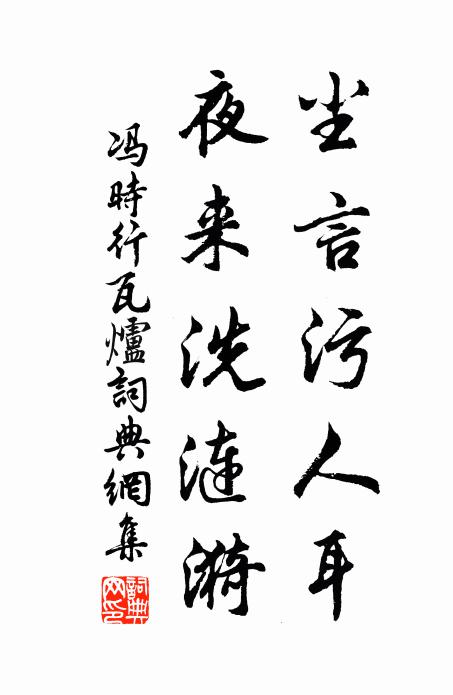 尘言污人耳
夜来洗漣漪
冯時行瓦爐詞典網集
詞典网印